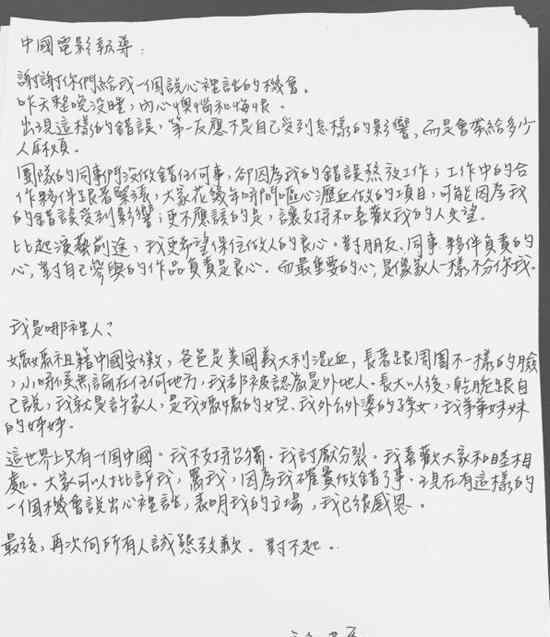 中國電影報導：
謝謝你們給我一個說心裡話的機會。
昨天整晚沒睡，內心懊惱和悔恨。
出現這樣的錯誤，第一反應不是自己受到怎樣的影響，而是會帶給多少
人麻煩。
團隊的同事們沒做錯任何事，卻因為我的錯誤熬夜工作；工作中的合
作夥伴跟著緊張，大家花幾年時間嘔心瀝血做的項目，可能因為我
的錯誤受到影響；更不應該的是，讓支持和喜歡我的人失望。
比起演藝前途，我更希望保住做人的良心。對朋友、同事、夥伴負責的
心，對自己參與的作品負責是良心。而最重要的心，是像家人一樣不分你我。
我是哪裡人？
媽媽祖籍中國安徽，爸爸是美國義大利混血，長著跟周圍不一樣的臉
，小時候無論在任何地方，我都被認為是外地人。長大以後，乾脆跟自
己說，我就是許家人，是我媽媽的女兒、我外公外婆的孫女，我弟弟妹妹
的姊姊。
這世界上只有一個中國。我不支持台獨。我討厭分裂。我喜歡大家和睦相
處。大家可以批評我，罵我，因為我確實做錯了事。現在有這樣的
一個機會說出心裡話，表明我的立場，我已很感恩。
最後，再次向所有人誠懇致歉。對不起。